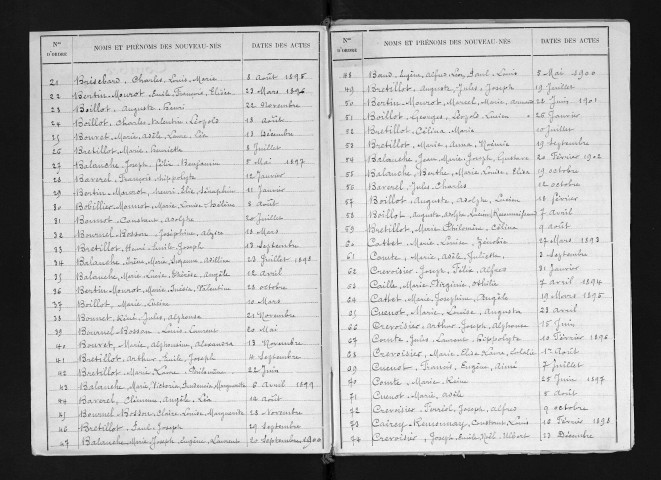 Nos D'ORDRE NOMS ET PRÉNOMS DES NOUVEAU-NÉS DATES DES ACTES
21 Brischard, Charles Louis Marie 8 Août 1895
22 Bertin-Mourot, Emile François Elisée 23 Mars 1896
23 Boillot, Auguste Henri 22 Novembre
24 Boillot, Charles Valentin Léopold 18 Août
25 Bouvet, Marie Adèle 17 Décembre
26 Bretillot, Marie Henriette 8 Juillet
27 Balanche, Joseph Félix Benjamin 5 Mai 1897
28 Baverel, François Hippolyte 12 Janvier
29 Bertin-Mourot, Henri Elie Séraphin 11 Janvier
30 Marie Louise Hélène 8 Août
31 Bonnot, Constant Adolphe 20 Juillet
32 Bournel-Bosson, Joséphine 18 Mars
33 Bretillot, Henri Emile Joseph 13 Septembre
34 Balanche, 23 Juillet 1898
35 Balanche, Marie Angèle 12 Avril
36 Bertin-Mourot, Marie Valentine 23 Octobre
37 Boillot, Marie 10 Mars
38 Bonnet, René Jules Alphonse 21 Novembre
39 Bournel-Bosson, Louis 20 Mai
40 Bouvet, Marie Alphonsine 13 Novembre
41 Bretillot, Arthur Emile Joseph 4 Septembre
42 Bretillot, Marie Philomène 22 Juin
43 Balanche, Marie Victoria Marguerite 6 Avril 1899
44 Baverel, Clémence Angèle 14 Août
45 Bournel-Bosson, Claire Louise Marguerite 28 Novembre
46 Bretillot, Paul Joseph 29 Septembre
47 Balanche, Marie Joseph Eugène Laurent 20 Septembre 1900
Nos D'ORDRE NOMS ET PRÉNOMS DES NOUVEAU-NÉS DATES DES ACTES
48 Baud, Eugène Alfred Léon Paul Louis 8 Mai 1900
49 Bretillot, Auguste Jules Joseph 19 Juillet
50 Bertin-Mourot, Marcel Marie 22 Juin 1901
51 Boillot, Georges Léopold Lucien 26 Janvier
52 Bretillot, Célina Marie 10 Juillet
53 Bretillot, Marie Anna Noémie 19 Septembre
54 Balanche, Jean Marie Joseph Gustave 20 Février 1902
55 Balanche, Berthe Marie Louise Elisa 19 Octobre
56 Baverel, Jules Charles 12 Octobre
57 Boillot, Auguste Adolphe Lucien 18 Février
58 Boillot, Auguste Adolphe Lucien 7 Avril
59 Bretillot, Marie Philomène Célina 9 Août
60 Cattet, Marie Louise Zénobie 27 Mars 1893
61 Comte, Marie Adèle Juliette 2 Septembre
62 Crevoisier, Joseph Félix Alfred 31 Janvier
63 Caille, Marie Virginie Othilie 7 Avril 1894
64 Cattet, Marie Joséphine Angèle 19 Mars 1895
65 Cuenot, Marie Louise Augusta 23 Avril
66 Crevoisier, Arthur Joseph Alphonse 15 Juin
67 Comte, Jules Laurent Hippolyte 10 Février 1896
68 Crevoisier, Marie Elise 17 Août
69 Cuenot, Francis Eugène Aimé 7 Juillet
70 Comte, Marie 25 Juin 1897
71 Cuenot, Marie Adèle 5 Août
72 Crevoisier, Joseph Alfred 9 Octobre
73 Cairey-Remonnay, Constant 18 Février 1898
74 Crevoisier, Joseph Emile Noël 23 Décembre